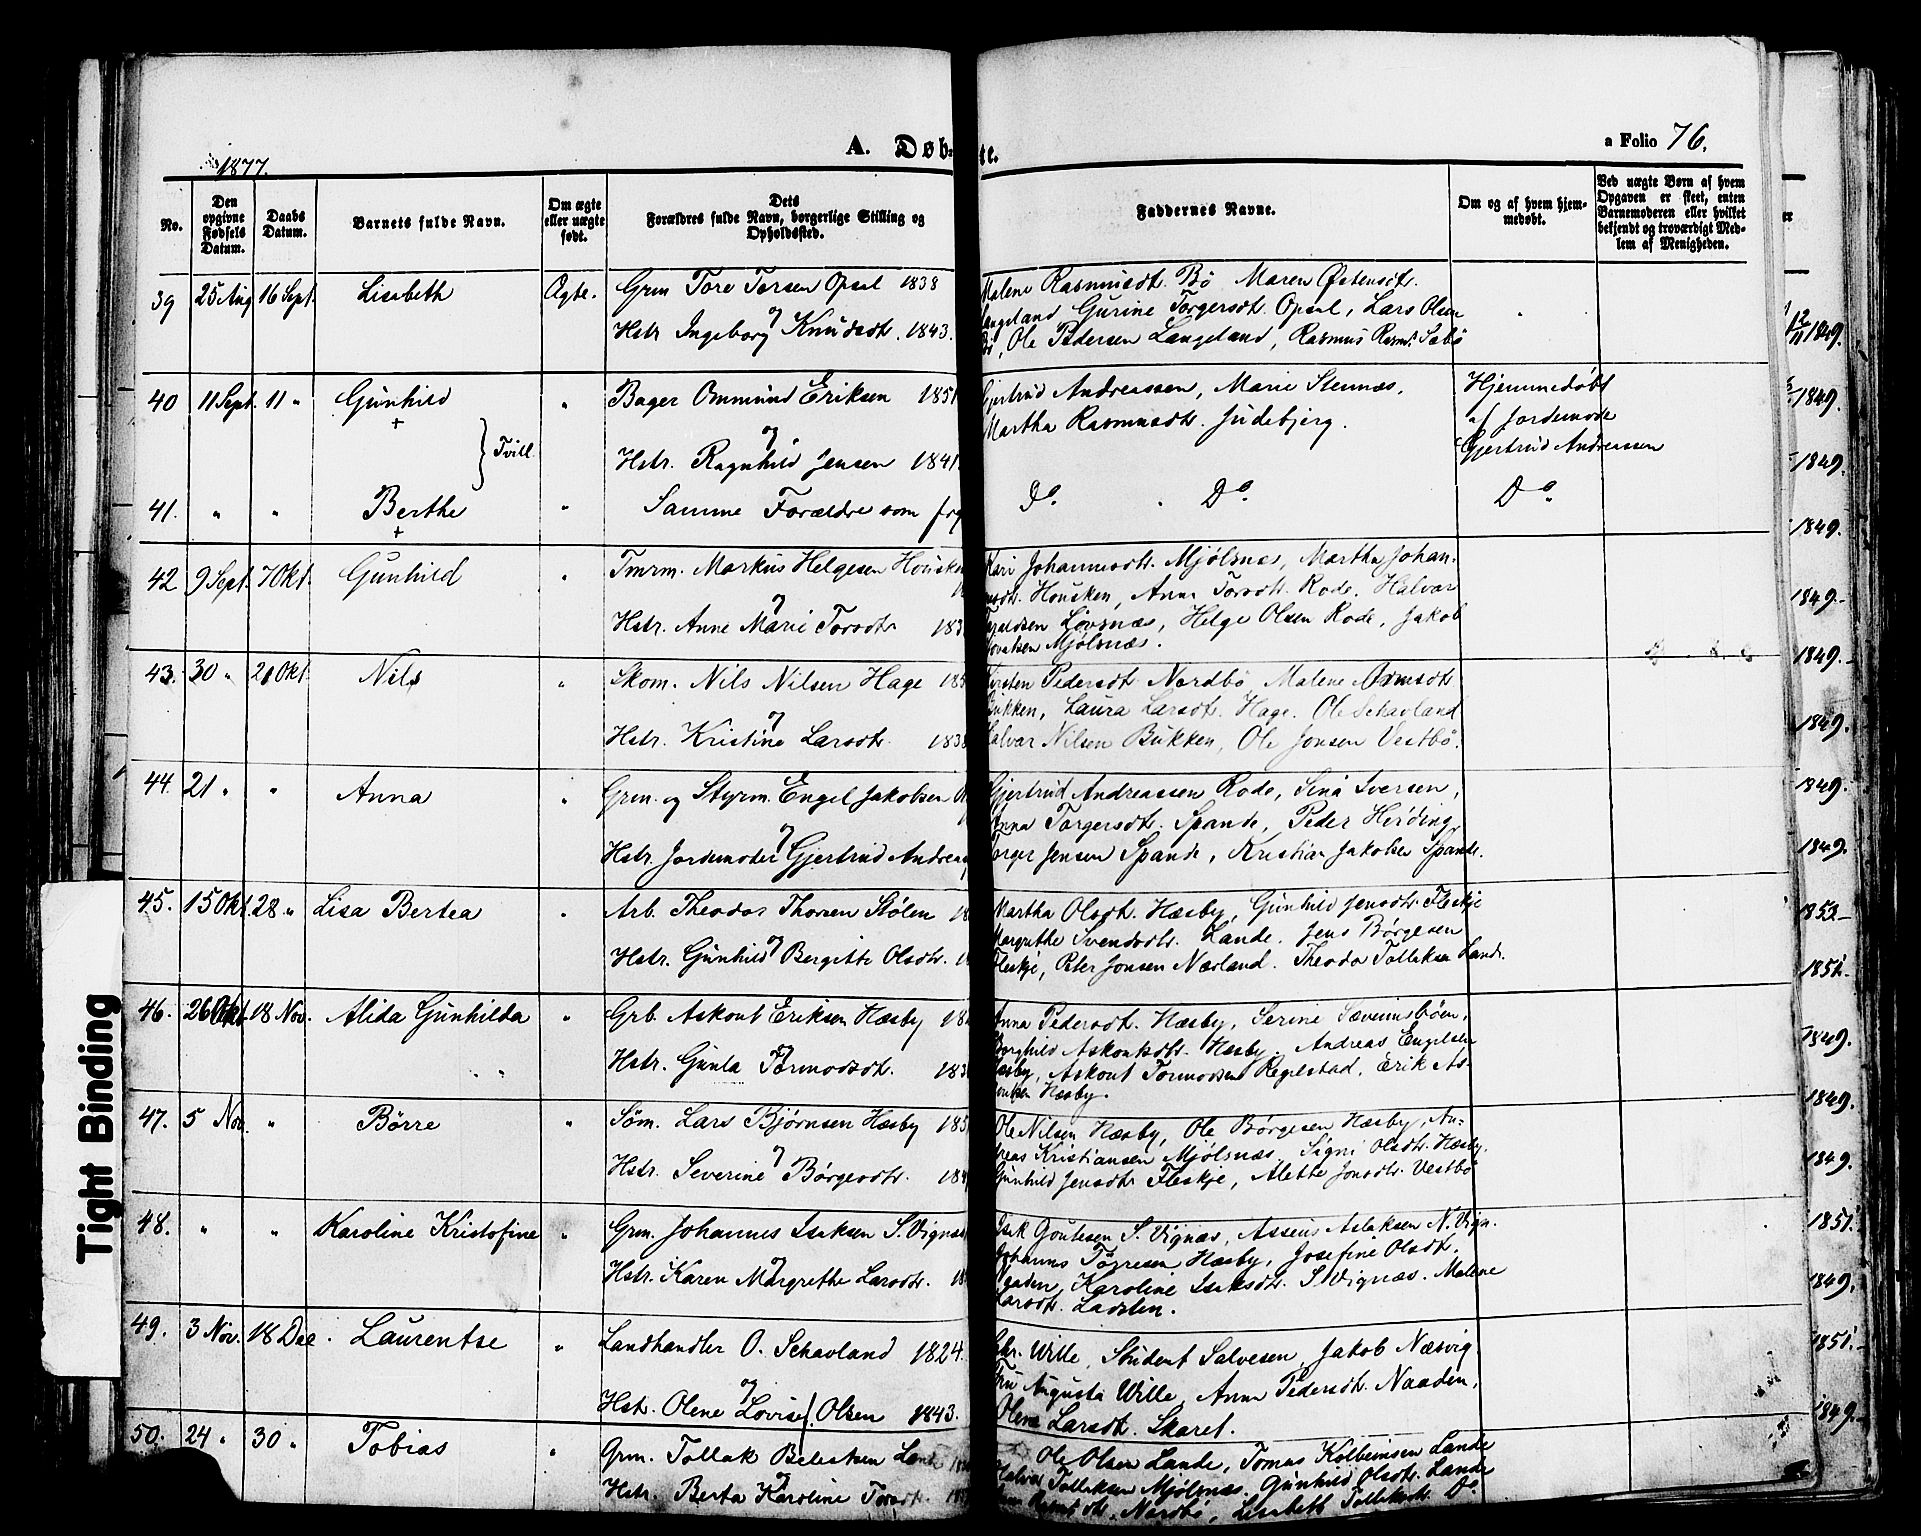 A. Døb- te.
a Folio 76.
1877.
No.
Den opgivne Fødsels Datum.
Daabs Datum.
Barnets fulde Navn.
Om ægte eller uægte født.
Dets Forældres fulde Navn, borgerlige Stilling og Opholdssted.
Faddernes Navne.
Om og af hvem hjemmedøbt.
Ved uægte Børn af hvem Opgaven er skeet, enten Barnemoderen eller hvilket bekjendt og troværdigt Medlem af Menigheden.
39 25 Aug 16 Sept. Lisabeth Ægte. Grm Tore Torsen Opsal 1838
og
Hstr Ingeborg Knudsdt. 1843.
Malene Rasmusdt. Bø Maren Østensdt.
Langeland Gurine Torgersdt. Opsal, Lars Olsen
Bø, Ole Pedersen Langeland, Rasmus Rasms. Sabø
40 11 Sept. 11 " Gunhild + " Bager Ommund Eriksen 1851
og
Hstr. Ragnhild Jensen 1841.
Tvill.
Gjertrud Andreassen, Marie Stennæs,
Martha Rasmusdt. Judebjerg.
Hjemmedøbt
af Jordemode
Gjertrud Andreassen
41. " " Berthe + " Samme Forældre som frg
Do. Do. Do.
42 9 Sept. 7 Okt. Gunhild " Tmrm. Markus Helgesen Housken
og
Hstr. Anne Marie Torsdtr 183
Kari Johannesdt. Mjølsnæs, Martha Johan-
nesdt. Housken, Anna Torsdt. Rode, Halvar
Lovsnæs, Helge Olsen Rode, Jakob
Mjølsnæs.
43. 30 " 21 Okt. Nils " Skom. Nils Nilsen Hage 185
og
Hstr. Kristine Larsdtr. 1838
Kirsten Pedersdt. Nordbø Malene Ormsdt.
Bukken, Laura Larsdt. Hage. Ole Schavland
Halvar Nilsen Bukken, Ole Jonsen Vestbø.
44. 21 " " Anna " Grm. og Styrm. Engel Jakobsen
og
Hstr. Jordemoder Gjertrud Andreas
Gjertrud Andreassen Rode, Sina Iversen,
Anna Torgersdt. Spande, Peder Hirding,
Torger Jensen Spande, Kristian Jakobsen Spande.
45. 15 Okt. 28 " Lisa Bertea " Arb. Theodor Thorsen Stølen 18
og
Hstr. Gunhild Bergitte Olsdtr.
Martha Olsdt. Hæsby, Gunhild Jensdt. Fleskje
Margrethe Svendsdt. Lande. Jens Børgesen
Fleskje, Peter Jonsen Nærland. Theodor Tolleksen Lande.
46. 26 Okt. 18 Nov. Alida Gunhilda " Grb. Askout Eriksen Hæsby 18
og
Hstr. Gunla Tormodsdt. 183
Anna Pedersdt. Hæsby, Serine Sæveimsbøen,
Borghild Askoutsdt. Hæsby. Andreas Engelsen
Hæsby, Askout Tormodsen Regelstad, Erik As-
koutsen Hæsby.
47. 5 Nov. " Børre " Søm. Lars Bjørnsen Hæsby 185
og
Hstr. Severine Børgesdtr. 184
Ole Nilsen Hæsby, Ole Børgesen Hæsby, An-
dreas Kristiansen Mjølsnæs. Signi Olsdt. Hæsby,
Gunhild Jensdtr Fleskje, Alette Jonsdt. Vestbø
48. " " Karoline Kristofine " Grm. Johannes Isaksen S. Vignæs
og
Hstr. Karen Margrethe Larsdtr. 18
Isak Goutesen S. Vignæs, Assens Aslaksen N. Vign.
Johannes Tøgresen Hæsby, Josefine Olsdt.
Naaden, Karoline Isaksdt. S. Vignæs. Malene
Larsdt. Ladsten.
49. 3 Nov. 18 Dec. Laurentse " Landhandler O. Schavland 1824.
og
Hstr. Olene Lovise Olsen 1843.
Chr. Wille, Student Salvesen, Jakob Næsvig
Fru Augusta Wille, Anna Pedersdt. Naaden,
Olena Larsdt. Skaret.
50. 24 " 30 " Tobias " Grm. Tollak Belestsen Lande
og
Hstr. Berta Karoline Torsdt.
Ole Olsen Lande, Tomas Kolbeinsen Lande
Halvor Tolleksen Mjølsnæs. Gunhild Olsdt. Lande
Nordbø, Lisabeth Tolleksdt. Do.
1849.
1849.
1849.
1849.
1849.
1849.
1849.
1849.
1849.
1852
1851.
1849.
1849.
1849.
1851.
1849.
1851.
1849.
Tight Binding